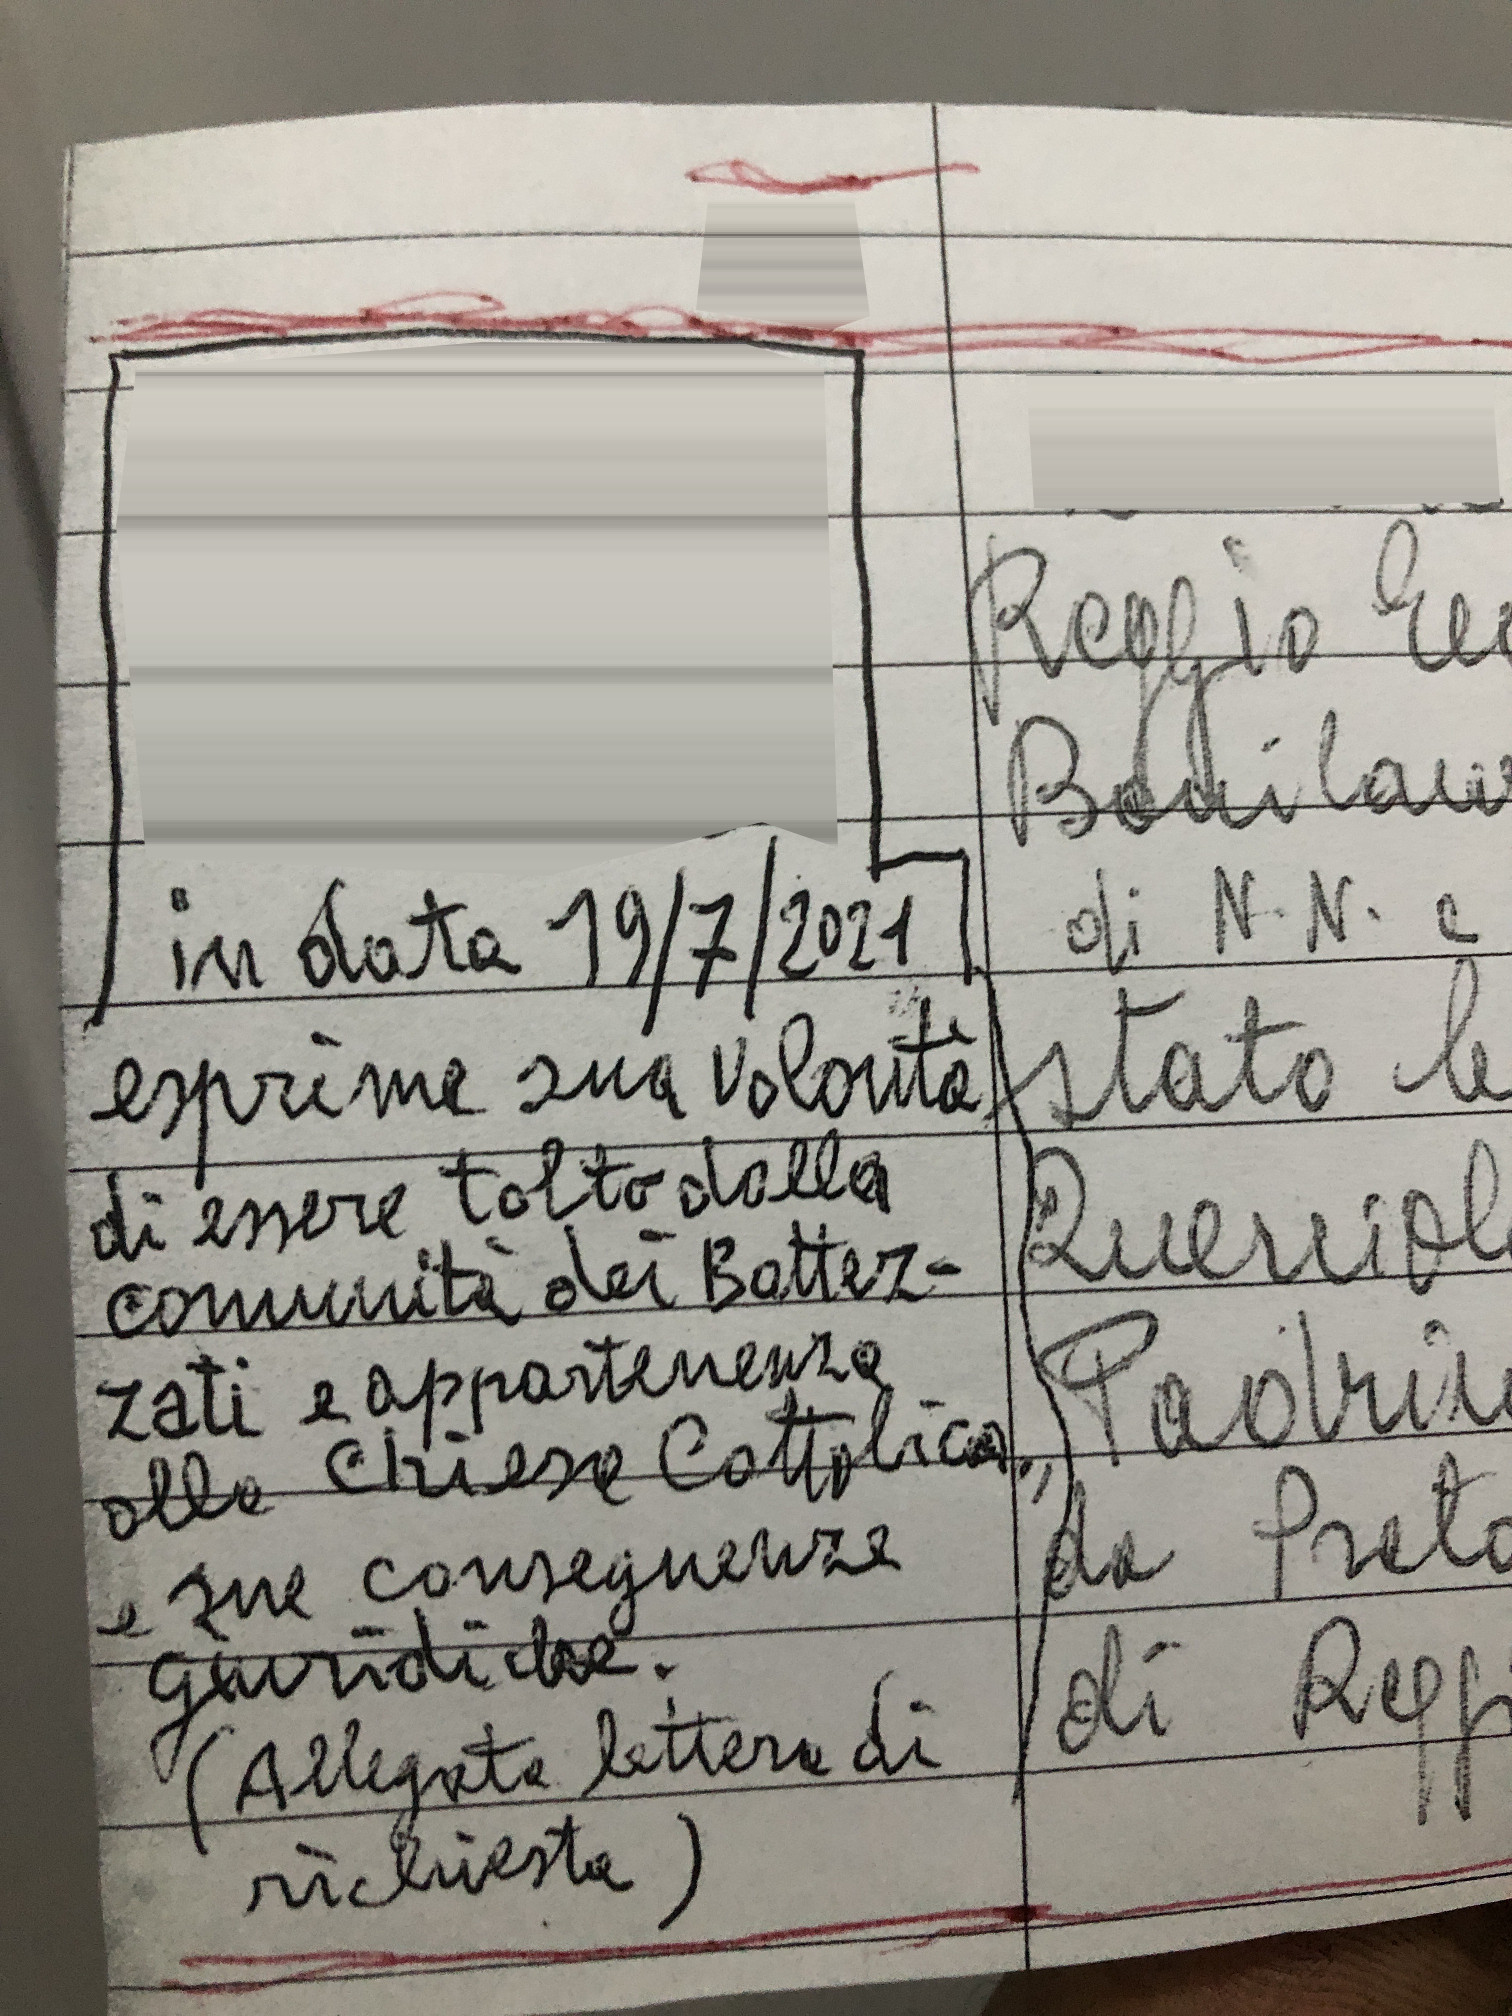 in data 19/7/2021
esprime sua volontà
di essere tolto dalla
comunità dei Battez-
zati e appartenenza
alla Chiesa Cattolica,
e sue conseguenze
giuridiche.
(Allegata lettera di
richiesta)
Reggio
di N.N. e
stato
da
di